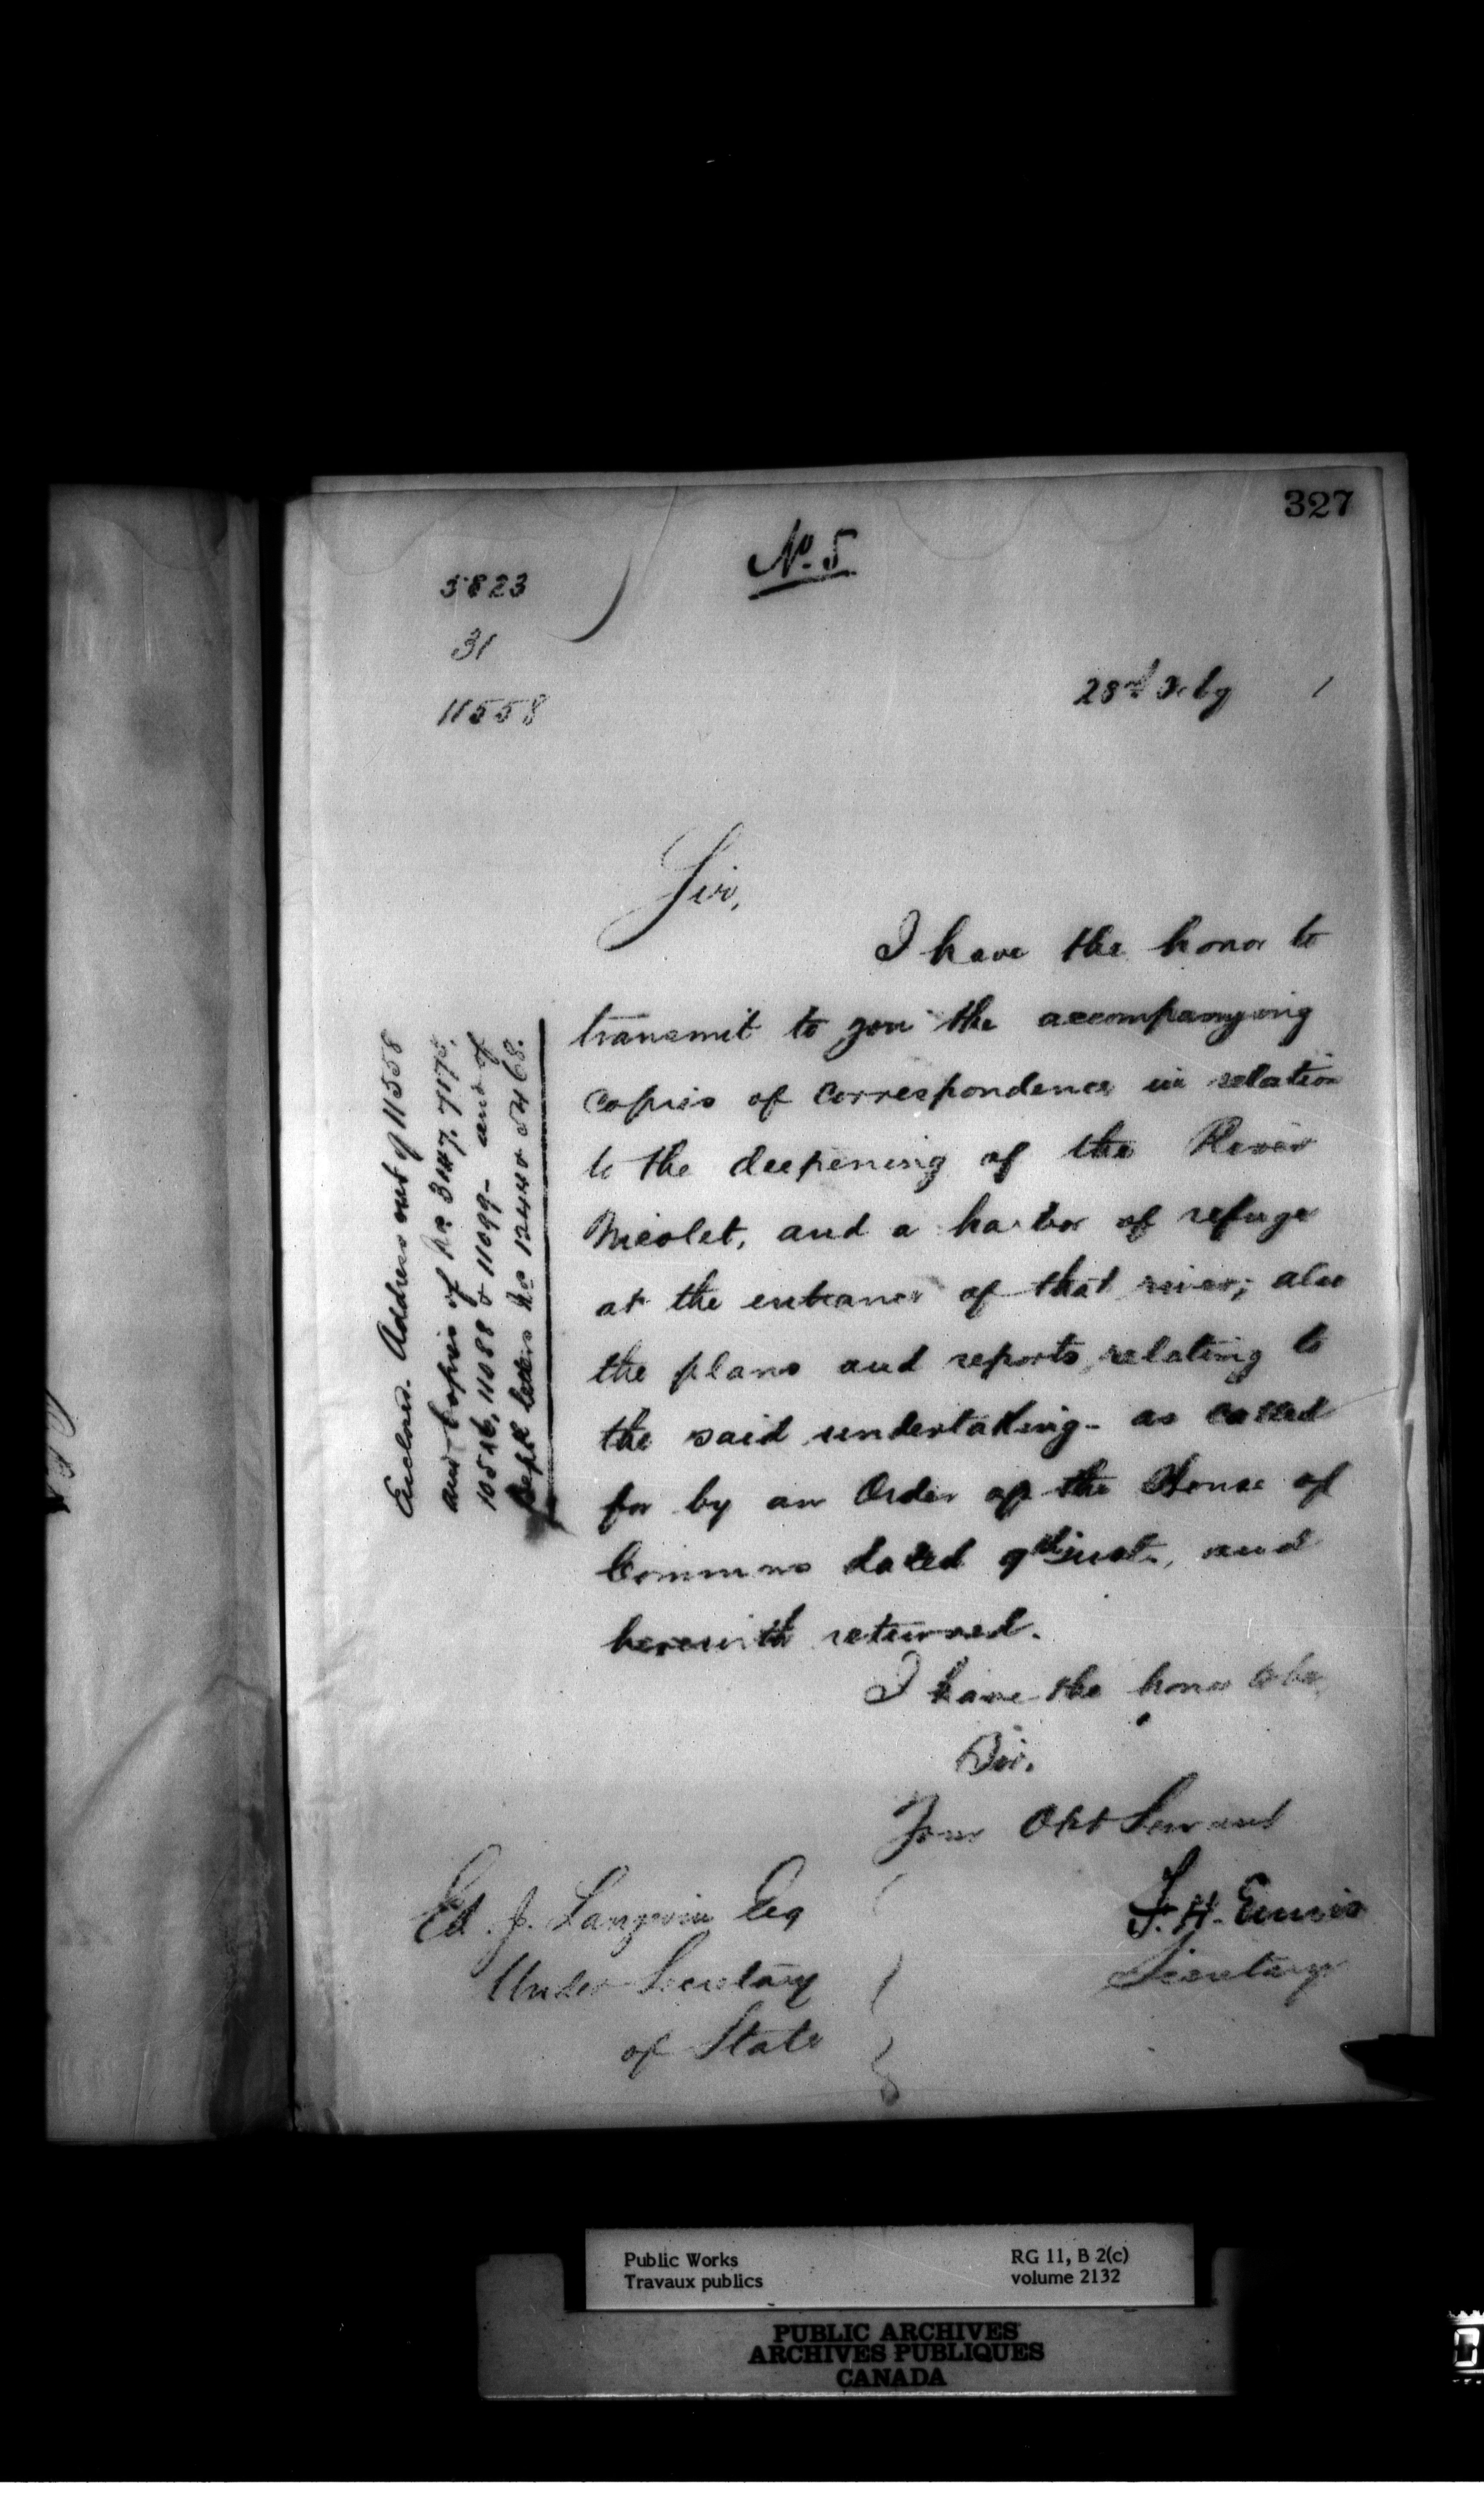 327
No. 5
5823
31
11558
28th Feby 1
Sir,
I have the honor to
transmit to you the accompanying
copies of correspondence in relation
to the deepening of the River
Nicolet, and a harbor of refuge
at the entrance of that river; also
the plans and reports relating to
the said undertaking - as called
for by an Order of the House of
Commons dated 9th inst., and
herewith returned.
I have the honor to be,
Sir.
Your Obt Servant
F. H. Ennis
Secretary
Ed. J. Langevin Esq
Under Secretary
of State
Enclosed. Address out of 11558
and copies of Nos 3147. 7175,
10516, 11088 & 11099 - and of
Dept letters Nos 1244 & 5468.
Public Works
Travaux publics
RG 11, B 2(c)
volume 2132
PUBLIC ARCHIVES
ARCHIVES PUBLIQUES
CANADA